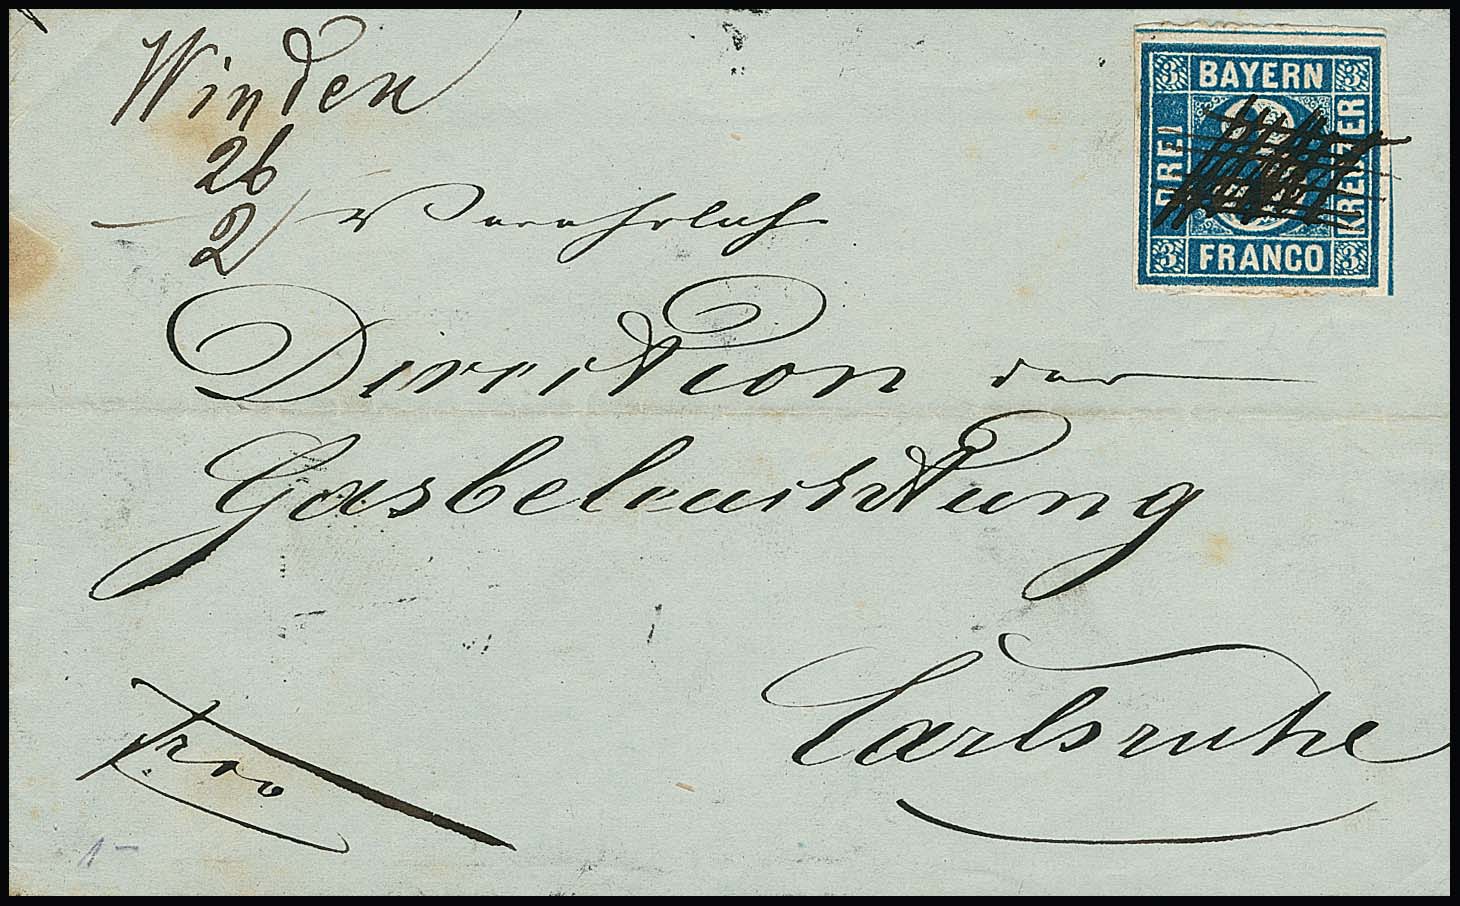 Winden
26
2
Verehrlich
Direction der
Gasbeleuchtung
Carlsruhe
frco
3 BAYERN 3
DREI
KREUZER
3 FRANCO 3